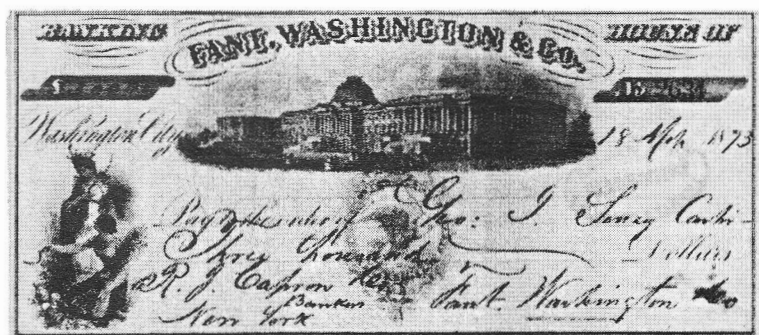 BANKING HOUSE OF
FANT, WASHINGTON & CO.
Washington City 18 1873
Pay to the order of Geo: I. Seney Cash
Three Thousand Dollars
R. J. Capron
Bankers Fant. Washington & Co
New York